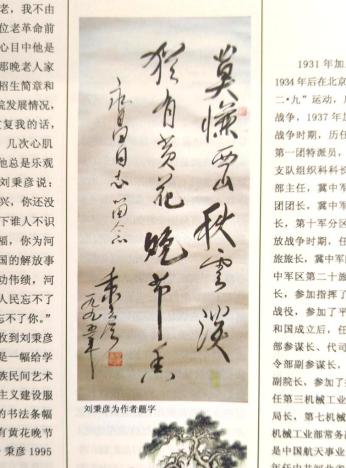 老，我不由
位老革命前
心目中他是
那晚老人家
招生简章和
院发展情况，
复我的话，
几次心肌
他总是乐观
刘秉彦说：
兴，你还没
下谁人不识
福，你为河
国的解放事
功伟绩，河
人民忘不了
忘不了你。”
收到刘秉彦
是一幅给学
族民间艺术
主义建设服
的书法条幅
有黄花晚节
秉彦 1995
莫嫌西山秋雲淡
猶有黄花晚節香
同志留念
秉彦
一九九五年
刘秉彦为作者题字
1931年加
1934年后在北京
二·九”运动，
战争，1937年加
战争时期，历任
第一团特派员，
支队组织科科长
部主任，冀中军
团团长，冀中军
长，第十军分区
放战争时期，任
旅旅长，冀中军
中军区第二十旅
长，参加指挥了
战役，参加了平
和国成立后，任
部参谋长、代司
令部副参谋长，
副院长，参加了
任第三机械工业
局长，第七机械
机械工业部常务
是中国航天事业